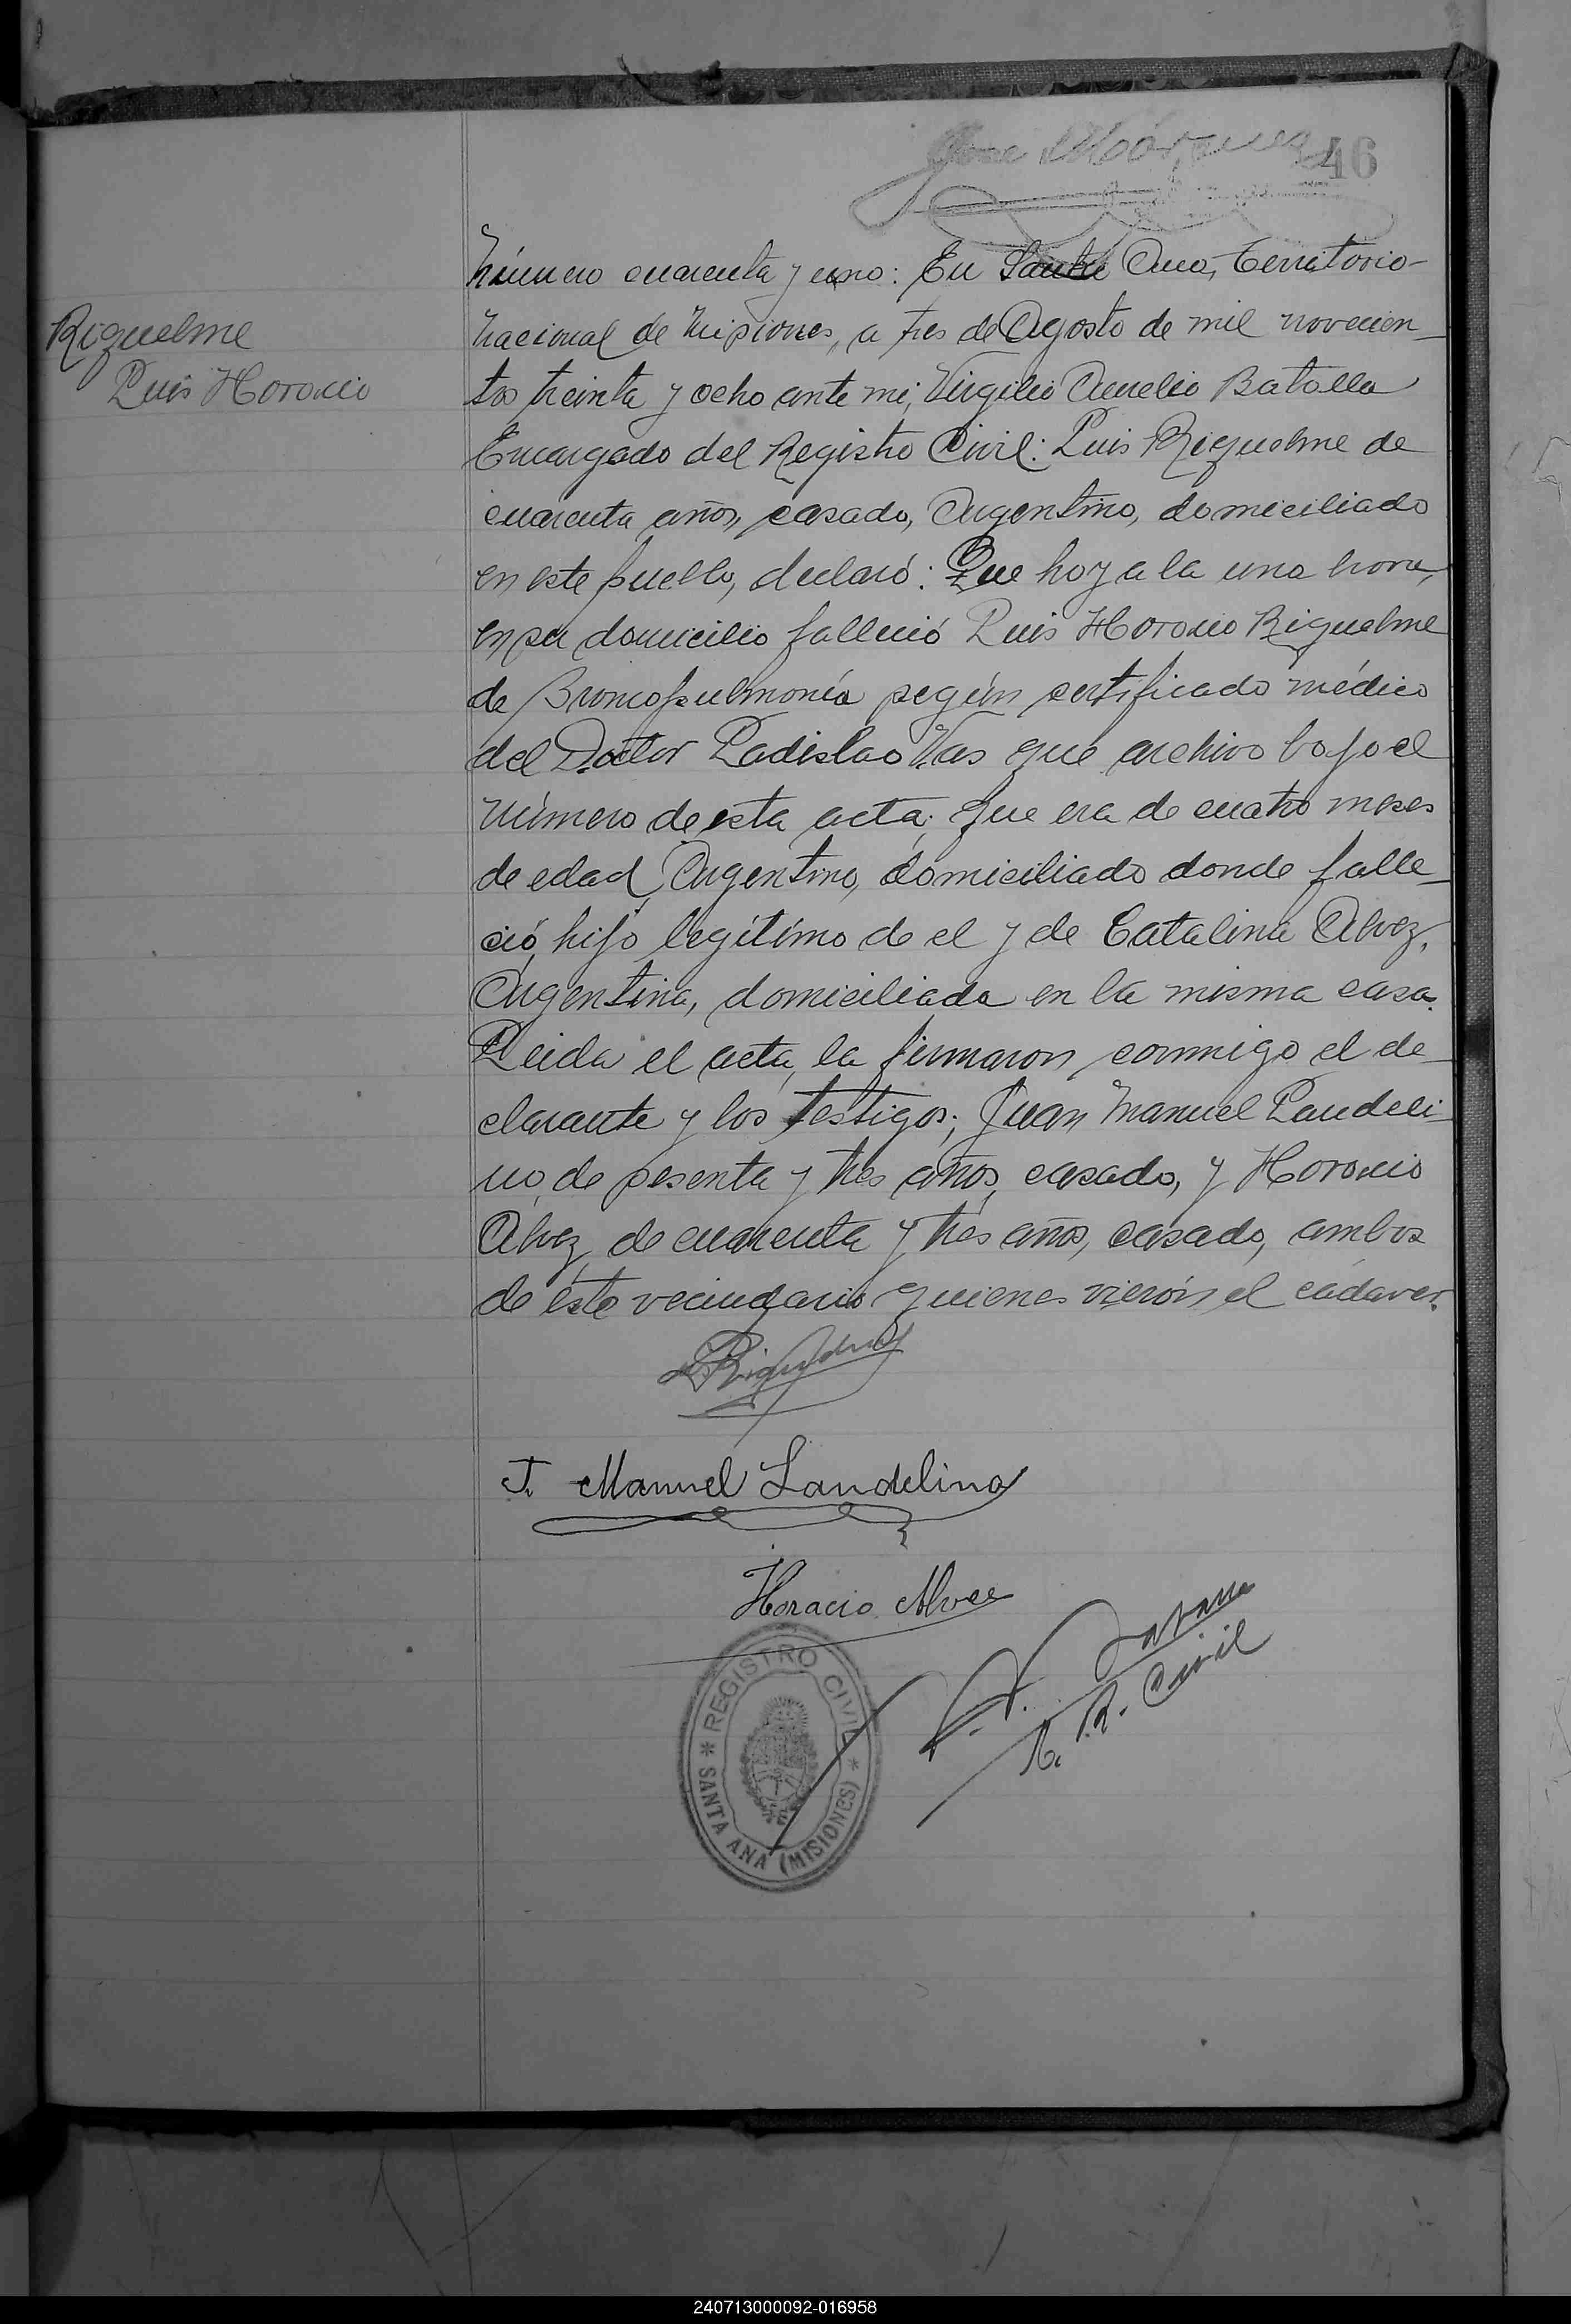 46
Número cuarenta y uno: En Santa Ana, Territorio-
Nacional de Misiones, a tres de Agosto de mil novecien-
Riquelme
Luis Horacio
tos treinta y ocho ante mi, Virgilio Aurelio Batalla
Encargado del Registro Civil: Luis Riquelme de
cuarenta años, casado, Argentino, domiciliado
en este pueblo, declaró: Que hoy a la una hora,
en su domicilio falleció Luis Horacio Riquelme
de Broncopulmonía según certificado médico
del Doctor Ladislao Vas que archivo bajo el
número de esta acta; que era de cuatro meses
de edad, Argentino, domiciliado donde falle-
ció, hijo legítimo de el y de Catalina Alvez,
Argentina, domiciliada en la misma casa.
Leida el acta, la firmaron conmigo el de-
clarante y los testigos; Juan Manuel Landeli-
no, de sesenta y tres años, casado, y Horacio
Alvez, de cuarenta y tres años, casado, ambos
de éste vecindario quienes vierón el cadaver.
J. Manuel Landelino
Horacio Alvez
E. R. Civil
* REGISTRO CIVIL *
SANTA ANA (MISIONES)
240713000092-016958